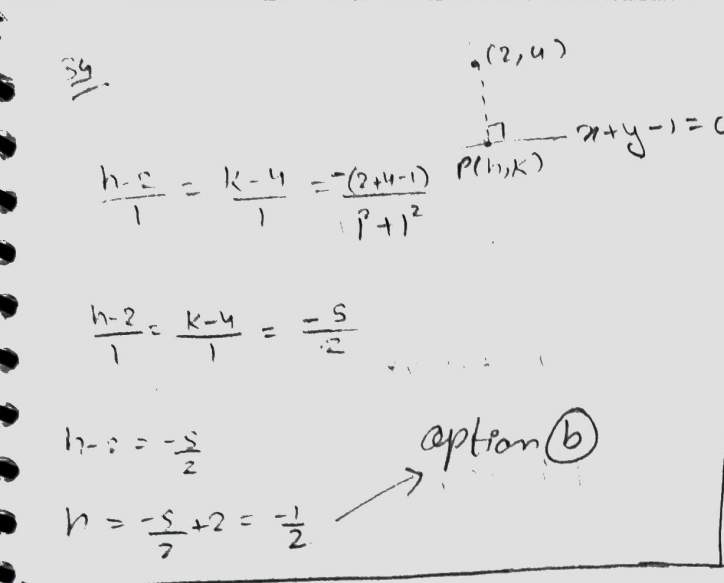 34.
(2,4)
x+y-1=0
P(h,k)
h-2/1 = k-4/1 = -(2+4-1)/1²+1²
h-2/1 = k-4/1 = -5/2
h-2 = -5/2
h = -5/2 +2 = -1/2
option (b)